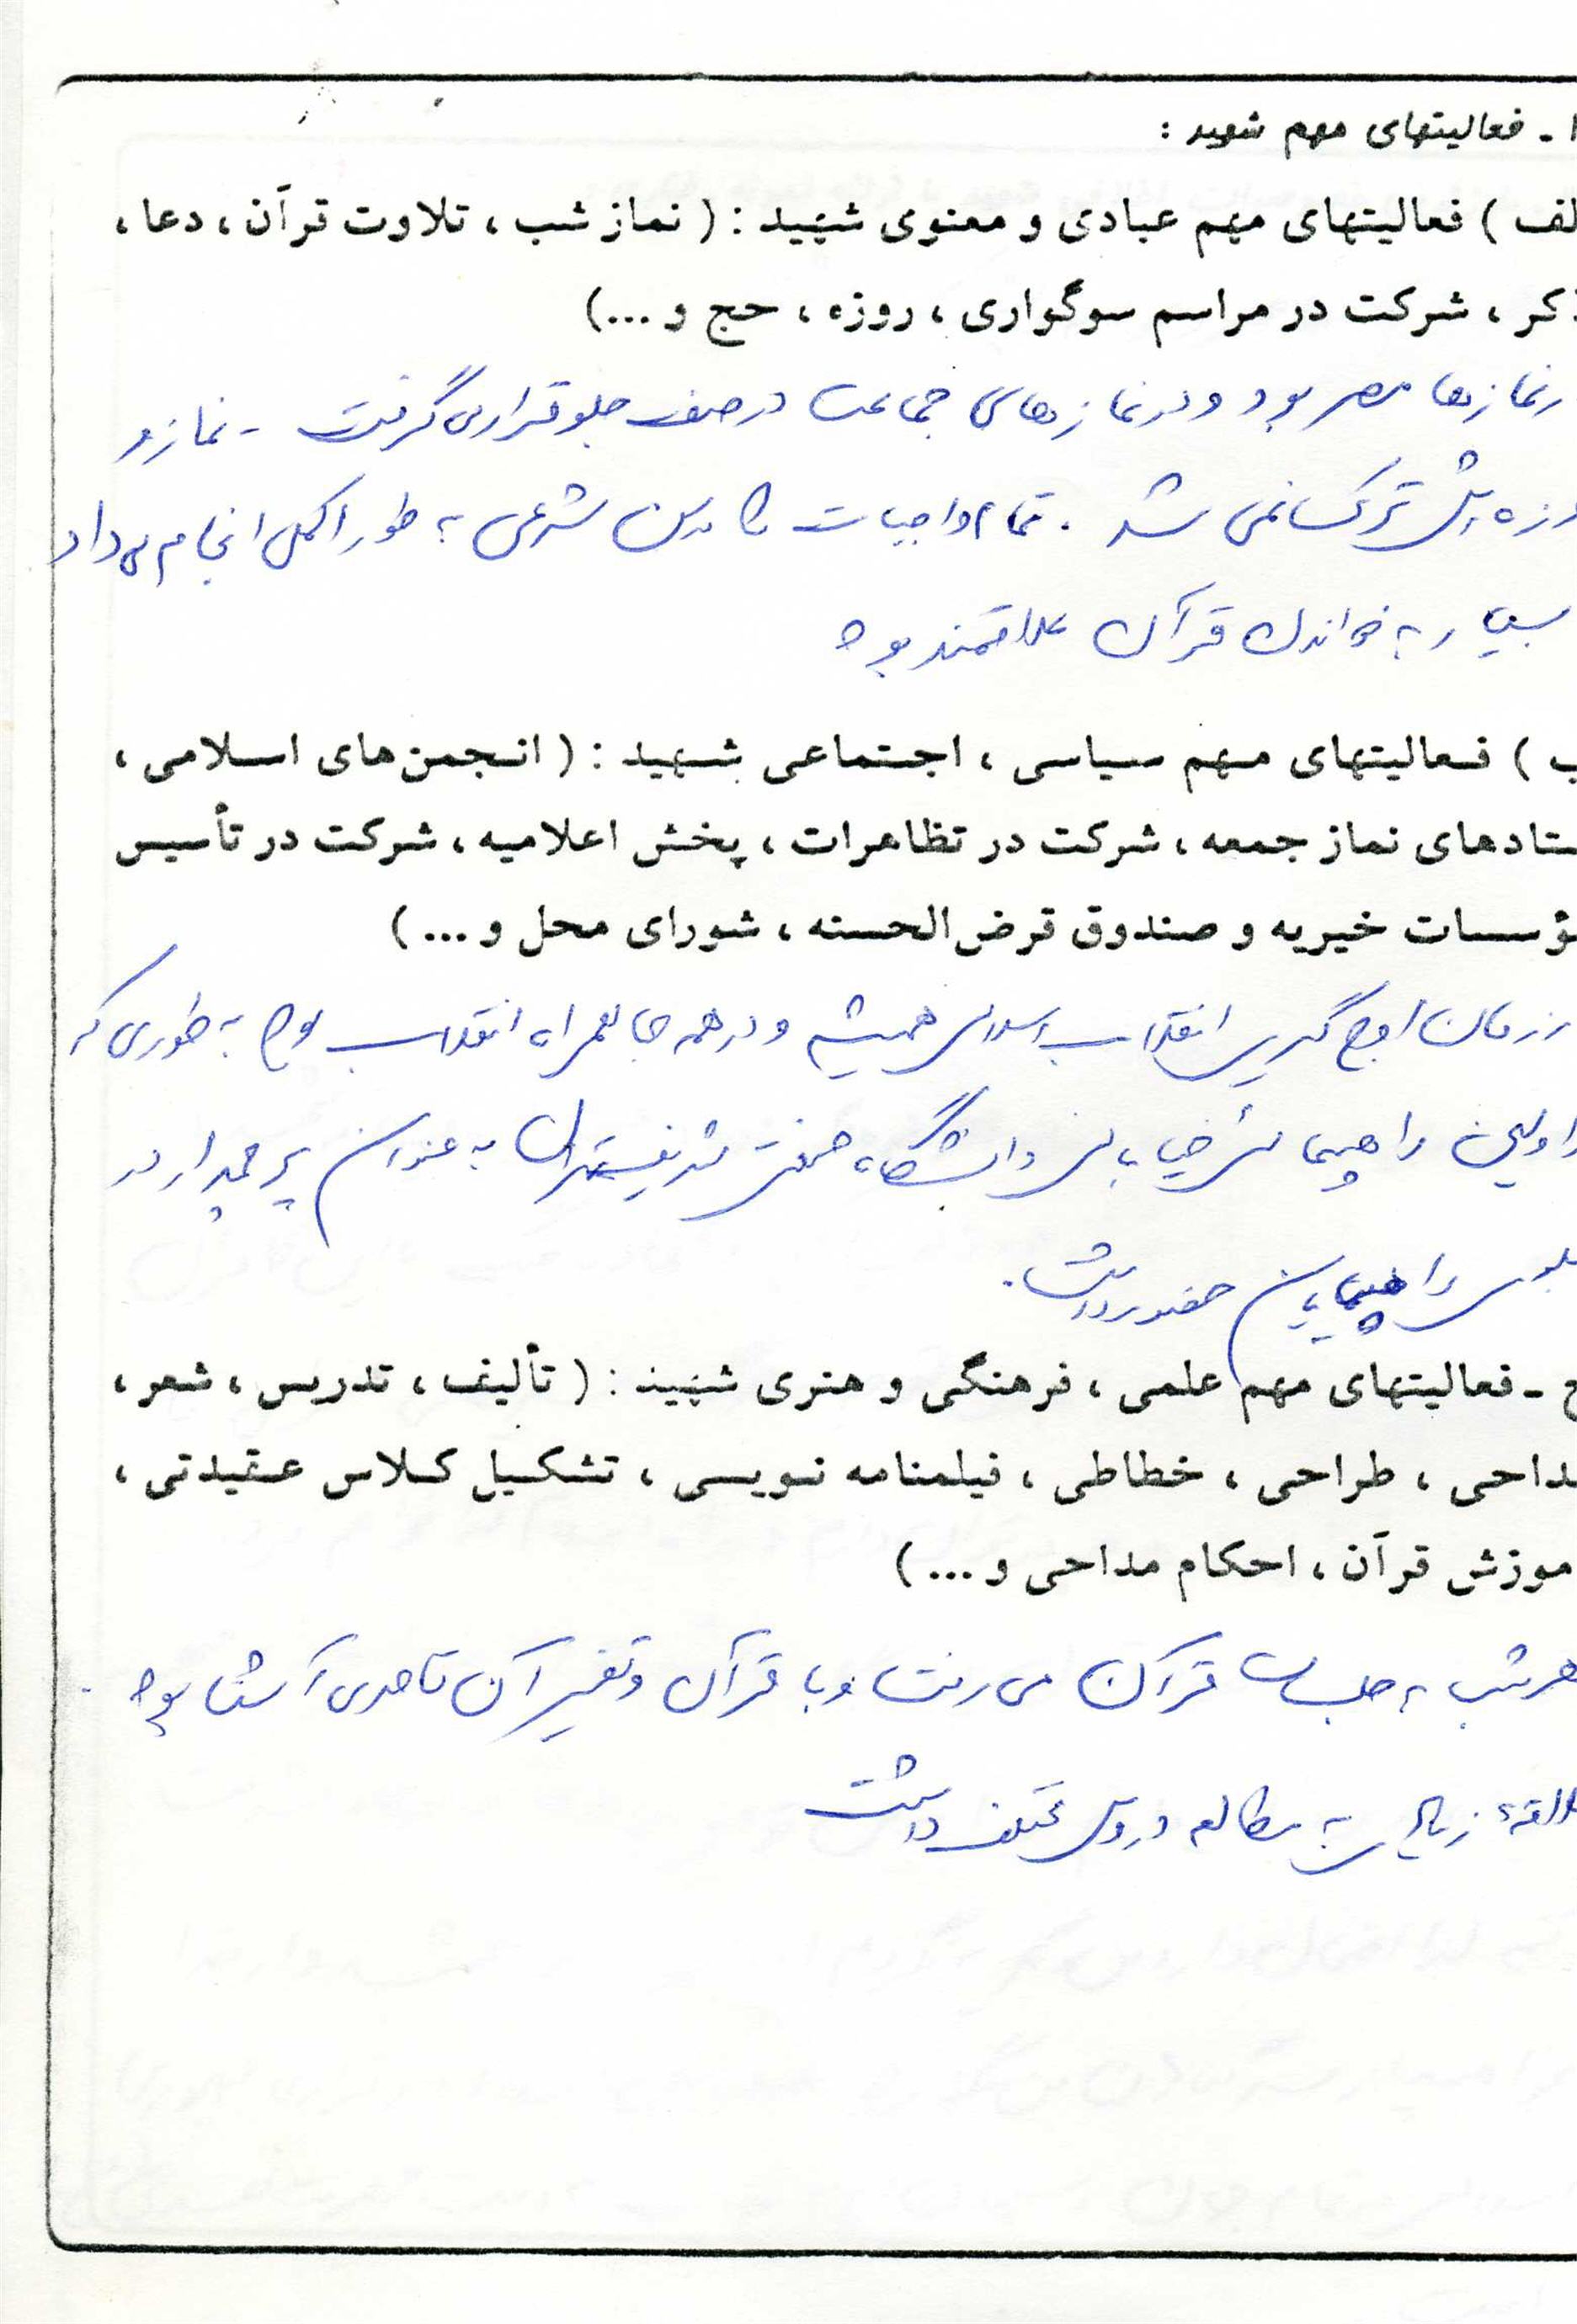 ۱ - فعالیتهای مهم شهید :
لف ) فعالیتهای مهم عبادی و معنوی شهید : ( نماز شب ، تلاوت قرآن ، دعا ،
ذکر ، شرکت در مراسم سوگواری ، روزه ، حج و ...)
رنمازها مصر بود و در نمازهای جماعت در صف جلو قرار می گرفت - نماز و
وزه اش ترک نمی شد . تمام واجبات شرعی به طور اکمل انجام می داد
بسیار به خواندن قرآن علاقمند بود
ب ) فعالیتهای مهم سیاسی ، اجتماعی شهید : ( انجمن‌های اسلامی ،
ستادهای نماز جمعه ، شرکت در تظاهرات ، پخش اعلامیه ، شرکت در تأسیس
ؤسسات خیریه و صندوق قرض‌الحسنه ، شورای محل و ... )
ز زمان اوج گیری انقلاب اسلامی همیشه و در همه جا همراه انقلاب بود به طوری که
اولین راهپیمائی خیابانی دانشگاه صنعتی شریف به عنوان پرچمدار در
جلوی راهپیمایان حضور داشت .
ج - فعالیتهای مهم علمی ، فرهنگی و هنری شهید : ( تألیف ، تدریس ، شعر ،
مداحی ، طراحی ، خطاطی ، فیلمنامه نویسی ، تشکیل کلاس عقیدتی ،
موزش قرآن ، احکام مداحی و ... )
هر شب به جلسات قرآن می رفت و با قرآن و تفسیر آن تا حدی آشنا بود .
لاقه زیادی به مطالعه دروس مختلف داشت